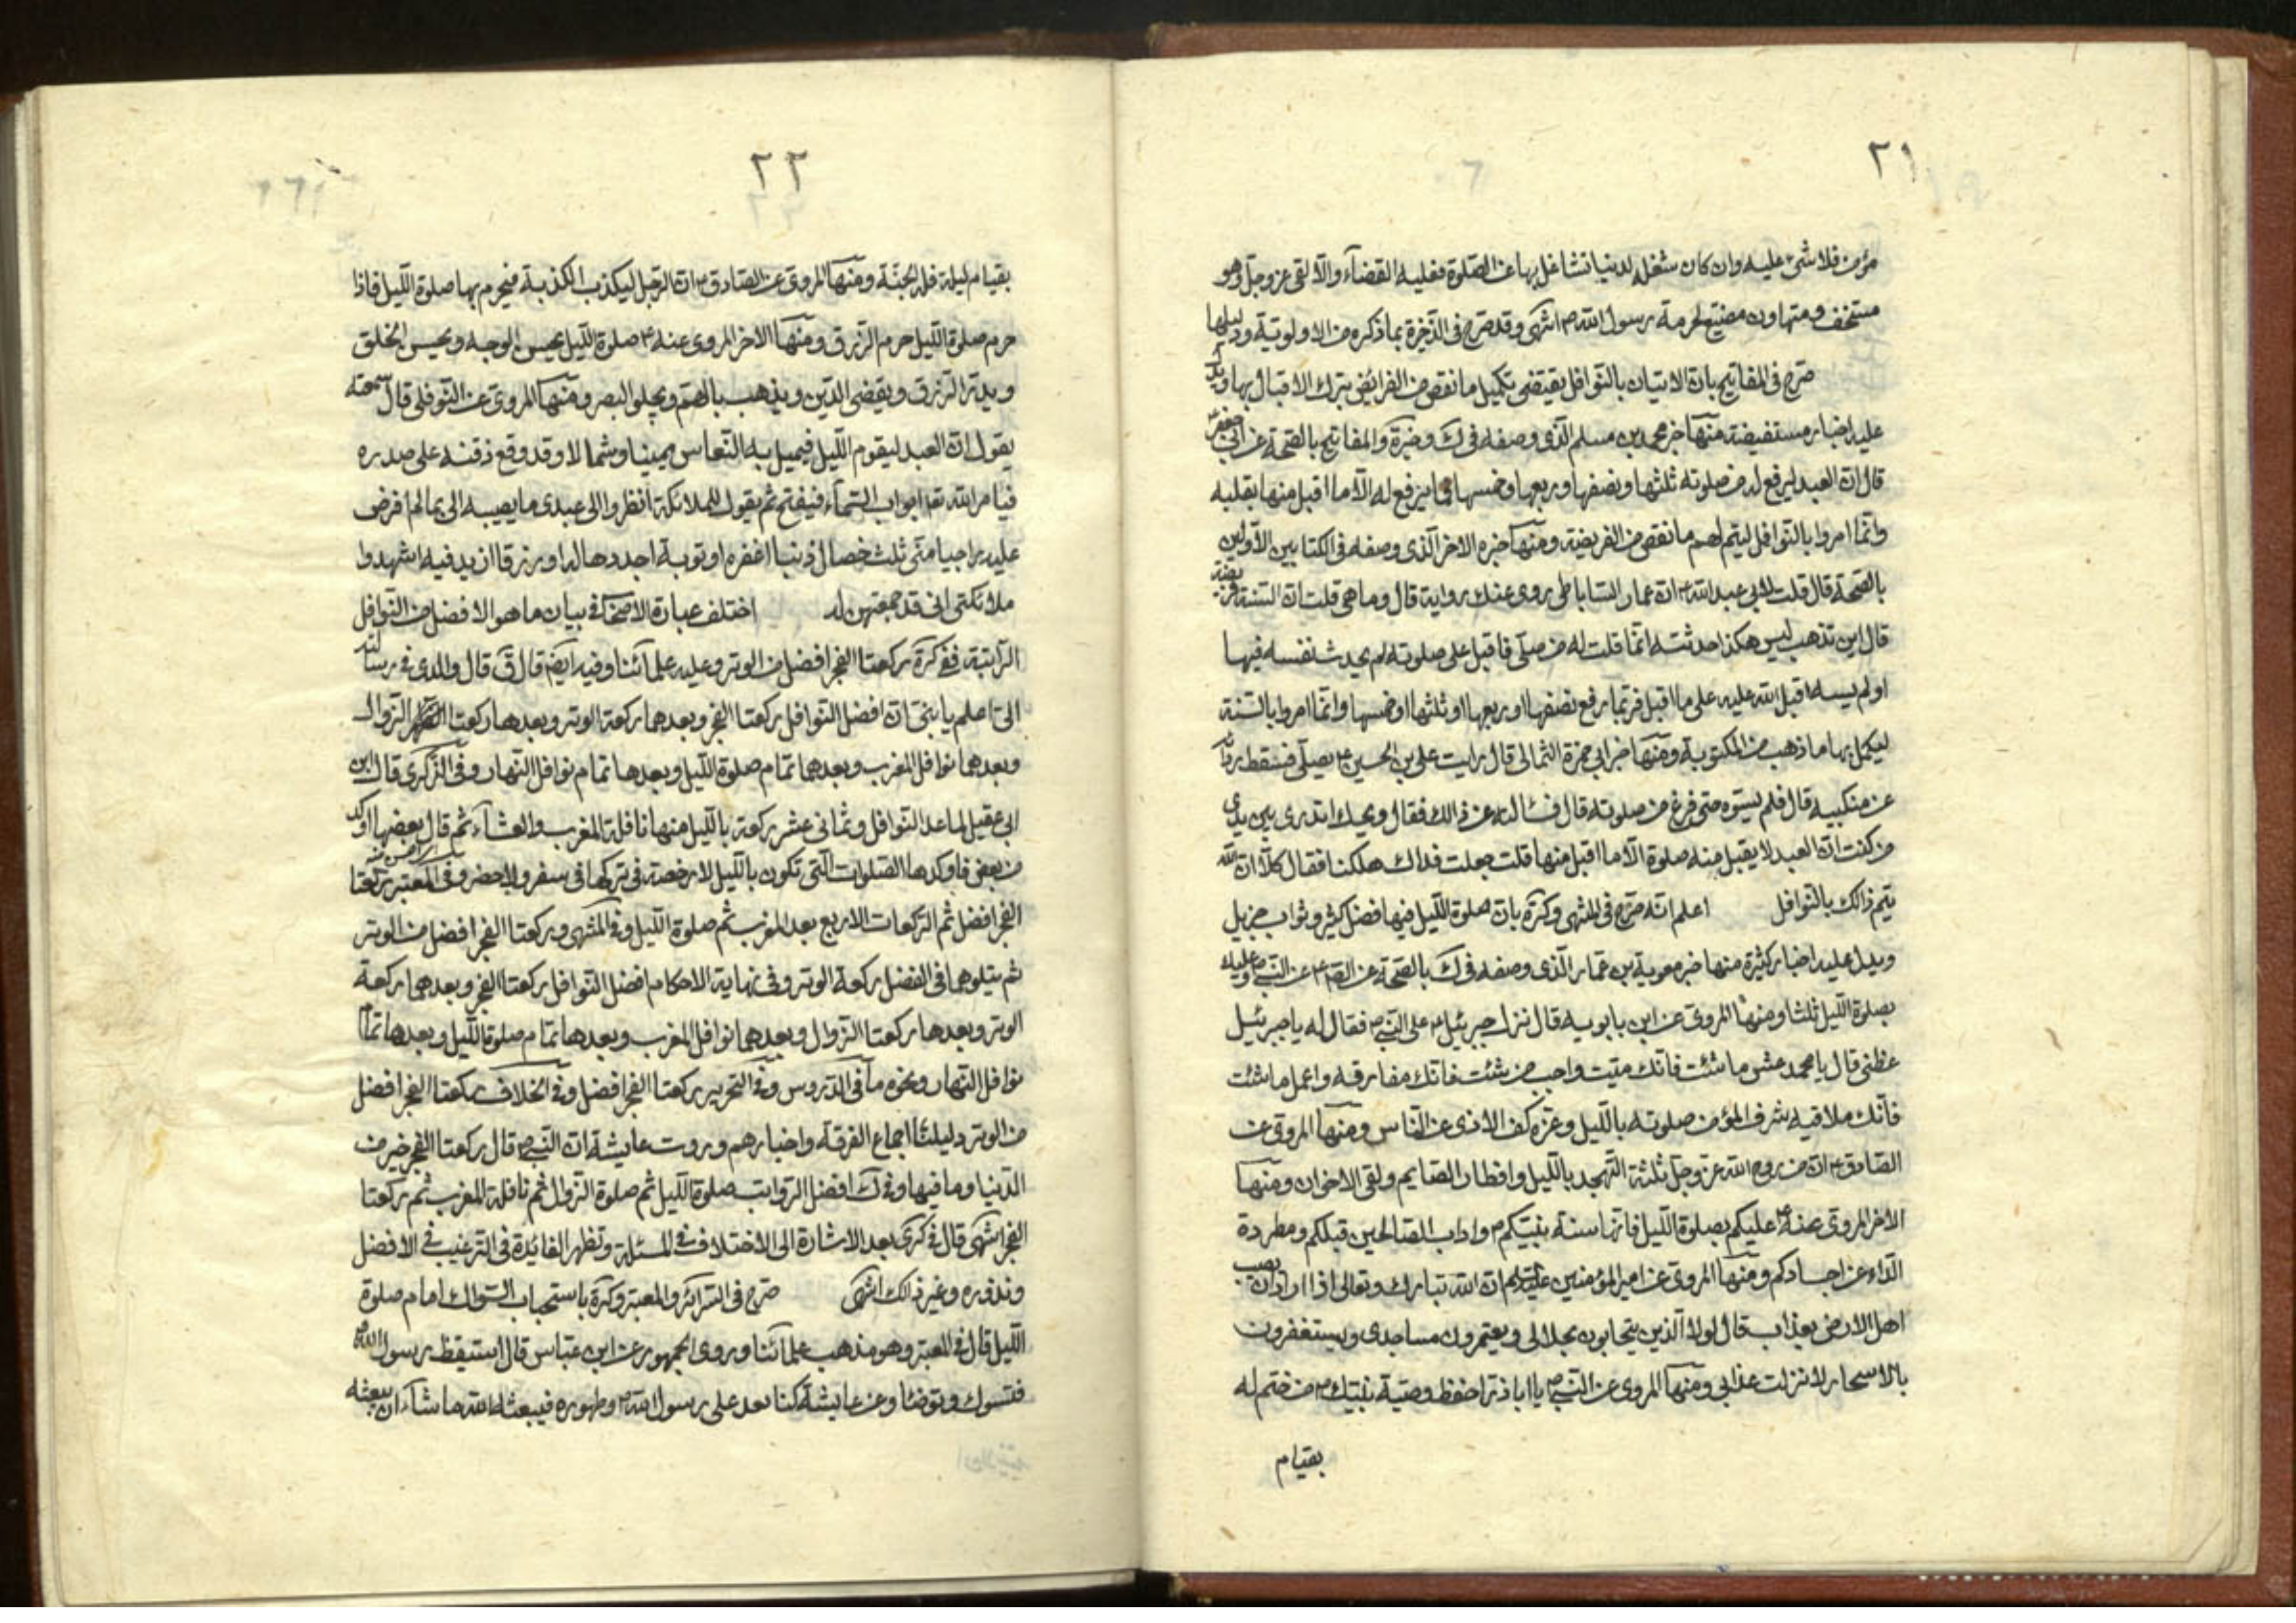 ٢١
مؤمن فلا شئ عليه وان كان شغله لدنيا تشاغل بها عن الصلوة فعليه القضآء والّا لقى عز وجل وهو
مستخف ومتهاون مضيّع لحرمة رسول الله ص انتهى وقد صرّح فى الذّخيرة بما ذكره من الاولوتية ودليلها
صرّح فى المفاتيح بان الاتيان بالنّوافل يقتضى تكميل ما نقص من الفرائض بترك الاقبال بها ويدل
عليه اخبار مستفيضة منها خبر محمد بن مسلم الّذى وصفه فى ك وخيرة والمفاتيح بالصّحة عن ابى جعفر ع
قال ان العبد ليرفع له من صلوته ثلثها ونصفها وربعها وخمسها فما يرفع له الّا ما اقبل منها بقلبه
وانّما امروا بالنّوافل ليتم لهم ما نقص من الفريضة ومنها خبره الاخر الّذى وصفه فى الكتابين الاوّلين
بالصّحة قال قلت لابى عبد الله ع ان عمار السّاباطى روى عنك رواية قال وما هى قلت ان السّنة فريضة
قال اين تذهب ليس هكذا حدثته انّما قلت له من صلّى فاقبل على صلوته لم يحدث نفسه فيها
او لم يسه اقبل الله عليه على ما اقبل فربّما رفع نصفها او ربعها او ثلثها او خمسها وانّما امروا بالسّنة
ليكمل بها ما ذهب من المكتوبة ومنها خبر ابى حمزة الثمالى قال رايت على بن الحسين ع يصلّى فسقط رداؤه
عن منكبيه قال فلم يسوّه حتى فرغ من صلوته قال فسالته عن ذالك فقال ويحك اتدرى بين يدى
من كنت ان العبد لا يقبل منه صلوة الّا ما اقبل منها قلت جعلت فداك هلكنا فقال كلّا ان الله
يتم ذالك بالنّوافل اعلم انّه صرّح فى المنتهى وكرة بان صلوة اللّيل فيها فضل كثير وثواب جزيل
ويدل عليه اخبار كثيرة منها خبر معوية بن عمار الّذى وصفه فى ك بالصّحة عن الصّ ع عن النّبى ص وعليك
بصلوة اللّيل ثلثا ومنها المروى عن ابن بابويه قال نزل جبرئيل ع على النّبى ص فقال له يا جبرئيل
عظنى قال يا محمد عش ما شئت فانّك ميّت واحبب من شئت فانّك مفارقه واعمل ما شئت
فانّك ملاقيه شرف المؤمن صلوته باللّيل وعزه كف الاذى عن النّاس ومنها المروى عن
الصّادق ع ان من روح الله عز وجل ثلثة التّهجد باللّيل وافطار الصّايم ولقى الاخوان ومنها
الاخر المروى عنه ع عليكم بصلوة اللّيل فانّها سنة نبيّكم ص واداب الصّالحين قبلكم ومطردة
الدّاء عن اجسادكم ومنها المروى عن امير المؤمنين عليه السلام ان الله تبارك وتعالى اذا اراد ان يصيب
اهل الارض بعذاب قال لولا الّذين يتحابون بجلالى ويعمرون مساجدى ويستغفرون
بالاسحار لانزلت عذابى ومنها المروى عن النّبى ص يا اباذر احفظ وصيّة نبيّك ص من ختم له
بقيام
٢٢
بقيام ليلة فله الجنّة ومنها المروى عن الصّادق ع ان الرّجل ليكذب الكذبة فيحرم بها صلوة اللّيل فاذا
حرم صلوة اللّيل حرم الرّزق ومنها الاخر المروى عنه ع صلوة اللّيل يحسن الوجه ويحسن الخلق
ويدر الرّزق ويقضى الدّين ويذهب بالهم ويجلو البصر ومنها المروى عن النّوفلى قال سمعته
يقول ان العبد ليقوم اللّيل فيميل به النّعاس يمينا وشمالا وقد وقع ذقنه على صدره
فيامر الله تعـ ابواب السّماء فيفتح ثم يقول للملائكة انظروا الى عبدى ما يصيبه الى بما لم افرض
عليه راجيا منّى ثلث خصال ذنبا اغفره او توبة اجددها له او رزقا ازيد فيه اشهدوا
ملائكتى انى قد جمعتهن له اختلف عبارة الاصحاب فى بيان ما هو الافضل من النّوافل
الرّاتبة ففى كرة ركعتا الفجر افضل من الوتر وعليه علمائنا وفيه ايضم قال ق قال والدى فى رسالته
الى اعلم يا بنى ان افضل النّوافل ركعتا الفجر وبعدهما ركعة الوتر وبعدها ركعتا الزّوال
وبعدهما نوافل المغرب وبعدهما تمام صلوة اللّيل وبعدها تمام نوافل النّهار وفى الذّكرى قال ابن
ابى عقيل لما عد النّوافل وثمانى عشر ركعة باللّيل منها نافلة المغرب والعشآء ثم قال بعضها اوكد
من بعض فاوكدها الصّلوات الّتى تكون باللّيل لا رخصة فى تركها فى سفر ولا حضر وفى المعتبر ركعتا
الفجر افضل ثم الرّكعات الاربع بعد المغرب ثم صلوة اللّيل وفى المنتهى وركعتا الفجر افضل من الوتر
ثم يتلوهما فى الفضل ركعة الوتر وفى نهاية الاحكام افضل النّوافل ركعتا الفجر وبعدهما ركعة
الوتر وبعدها ركعتا الزّوال وبعدهما نوافل المغرب وبعدها تمام صلوة اللّيل وبعدها تمام
نوافل النّهار ونحوه ما فى الدّروس وفى التحرير ركعتا الفجر افضل وفى الخلاف ركعتا الفجر افضل
من الوتر دليلنا اجماع الفرقة واخبارهم وروت عايشة ان النّبى ص قال ركعتا الفجر خير من
الدّنيا وما فيها وفى ك افضل الرّواتب صلوة اللّيل ثم صلوة الزّوال ثم نافلة المغرب ثم ركعتا
الفجر انتهى قال فى كرى بعد الاشارة الى الاختلاف فى المسئلة وتظهر الفائدة فى الترغيب فى الافضل
ونذوره وغير ذالك انتهى صرّح فى السّرائر والمعتبر وكرة باستحباب السّواك امام صلوة
اللّيل قال فى المعتبر وهو مذهب علمائنا وروى الجمهور عن ابن عبّاس قال استيقظ رسول الله ص
فتسوك وتوضا وعن عايشة كنا نعد على رسول الله ص وطهوره فيبعثه الله ما شآء ان يبعثه